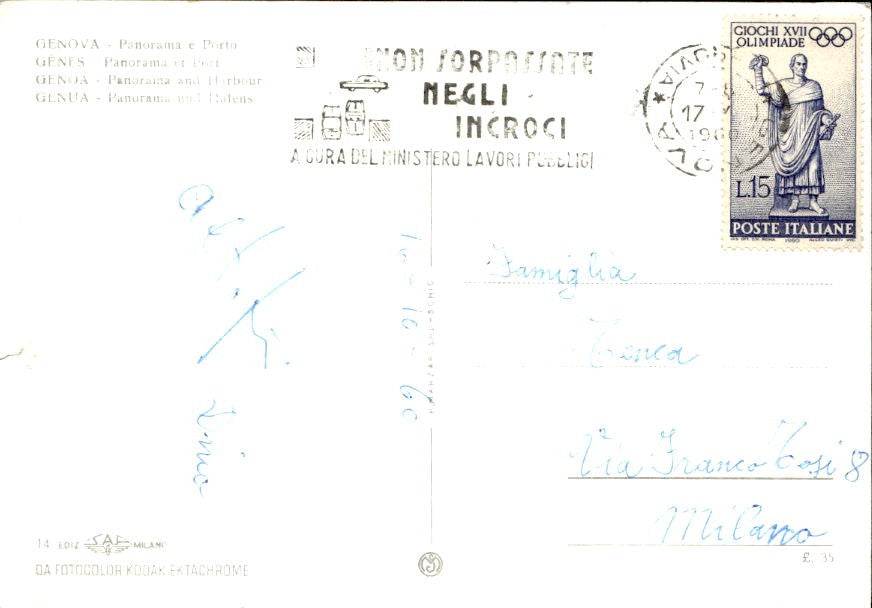 GENOVA - Panorama e Porto
GÊNES - Panorama et Port
GENOA - Panorama and Harbour
GENUA - Panorama und Hafens
NON SORPASSATE
NEGLI
INCROCI
A CURA DEL MINISTERO LAVORI PUBBLICI
7-8
17
1960
GIOCHI XVII
OLIMPIADE
L.15
POSTE ITALIANE
1960
16-10-60
Famiglia
Tenca
Via Franco Tosi 8
Milano
14 EDIZ. SAF MILANO
DA FOTOCOLOR KODAK EKTACHROME
£. 35